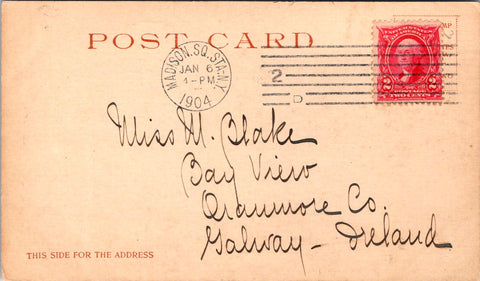 POST CARD
MADISON.SQ.STA.N.Y.
JAN 6
4-PM
1904
2
D
POSTAGE
TWO CENTS
2 2
Miss M. Blake
Bay View
Oranmore Co.
Galway - Ireland
THIS SIDE FOR THE ADDRESS